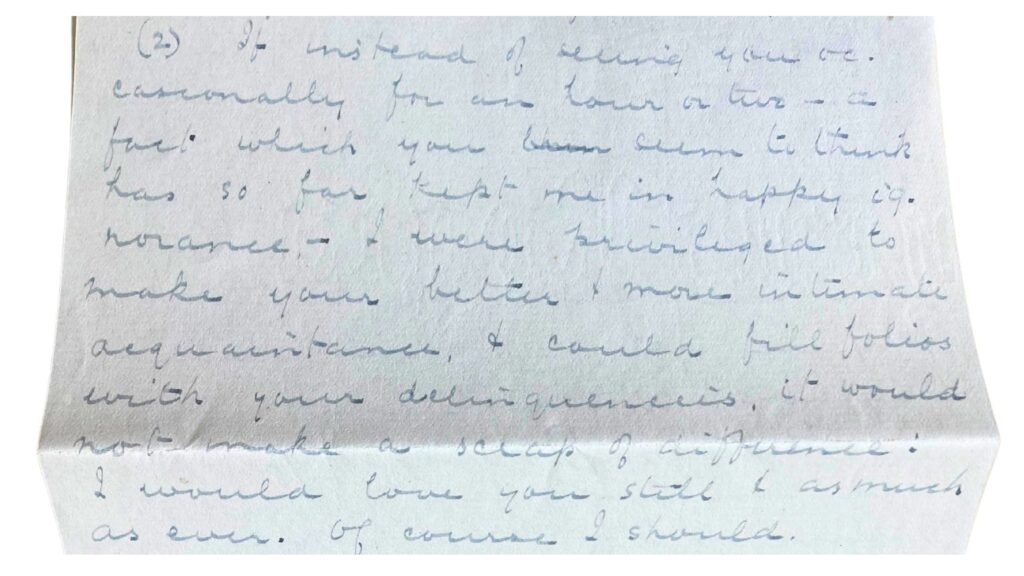 (2) If instead of seeing you oc-
casionally for an hour or two - a
fact which you seem to think
has so far kept me in happy ig-
norance, - I were privileged to
make your better & more intimate
acquaintance, & could fill folios
with your delinquencies, it would
not make a scrap of difference:
I would love you still & as much
as ever. Of course I should.